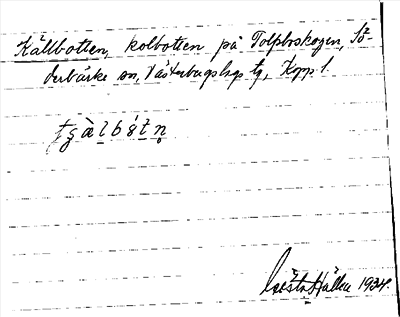 Källbotten, kolbotten på Tolpboskogen, Sö-
derbärke sn, Västerbergslags tg, Kopp l.
Gösta Hällen 1934.